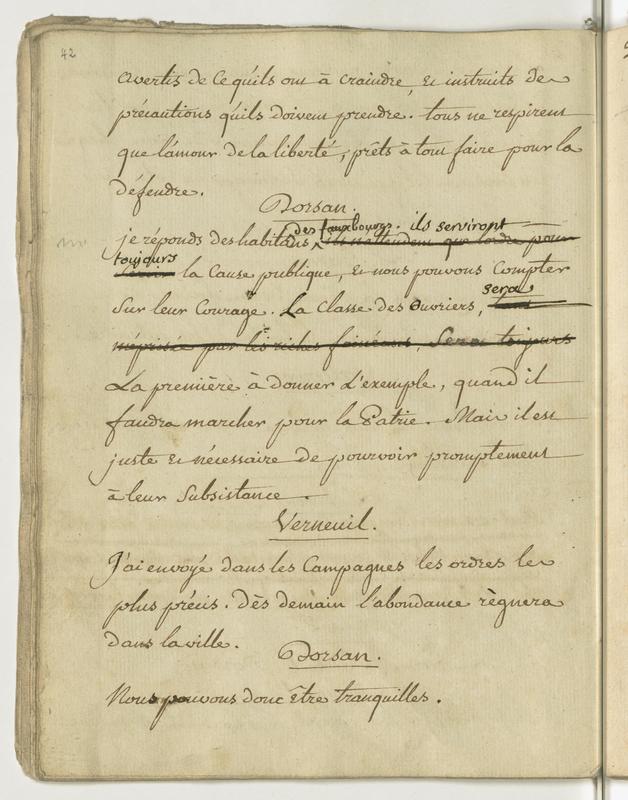 42
avertis de ce qu'ils ont à craindre, et instruits des
précautions qu'ils doivent prendre. tous ne respirent
que l'amour de la liberté, prêts à tout faire pour la
défendre.
Dorsan.
des fauxbourgs. ils serviront
je réponds des habitans, ils n'attendent que l'ordre pour
toujours
servir la Cause publique, et nous pouvons Compter
sera
Sur leur Courage. La Classe des Ouvriers, tant
méprisée par les riches fainéants, Sera toujours
La première à donner L'exemple, quand il
faudra marcher pour la Patrie. Mais il est
juste et nécessaire de pourvoir promptement
à leur Subsistance.
Verneuil.
J'ai envoyé dans les Campagnes les ordres les
plus précis. Dès demain l'abondance règnera
dans la ville.
Dorsan.
Nous pouvons donc Être tranquilles.